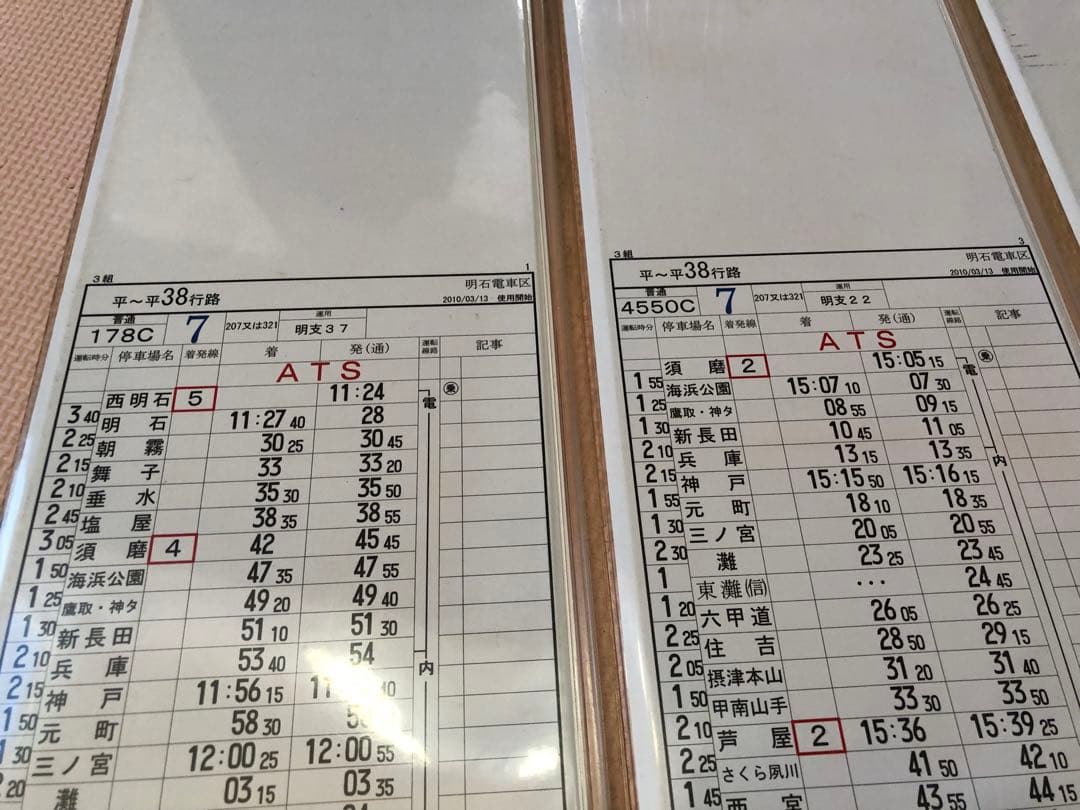 3組 1
明石電車区
平～平38行路 2010/03/13 使用開始
普通 運用
178C 7 207又は321 明支37
運転時分 停車場名 着発線 着 発(通) 運転線路 記事
ATS
西明石 5 11:24 電 乗
3 40 明石 11:27 40 28
2 25 朝霧 30 25 30 45
2 15 舞子 33 33 20
2 10 垂水 35 30 35 50
2 45 塩屋 38 35 38 55
3 05 須磨 4 42 45 45
1 50 海浜公園 47 35 47 55
1 25 鷹取・神タ 49 20 49 40
1 30 新長田 51 10 51 30
2 10 兵庫 53 40 54 内
2 15 神戸 11:56 15 40
1 50 元町 58 30
30 三ノ宮 12:00 25 12:00 55
20 灘 03 15 03 35
3組 3
明石電車区
平～平38行路 2010/03/13 使用開始
普通 運用
4550C 7 207又は321 明支22
運転時分 停車場名 着発線 着 発(通) 運転線路 記事
ATS
須磨 2 15:05 15 電 乗
1 55 海浜公園 15:07 10 07 30
1 25 鷹取・神タ 08 55 09 15
1 30 新長田 10 45 11 05
2 10 兵庫 13 15 13 35 内
2 15 神戸 15:15 50 15:16 15
1 55 元町 18 10 18 35
1 30 三ノ宮 20 05 20 55
2 30 灘 23 25 23 45
1 東灘(信) ... 24 45
1 20 六甲道 26 05 26 25
2 25 住吉 28 50 29 15
2 05 摂津本山 31 20 31 40
1 50 甲南山手 33 30 33 50
2 10 芦屋 2 15:36 15:39 25
2 25 さくら夙川 41 50 42 10
1 45 西宮 43 55 44 15